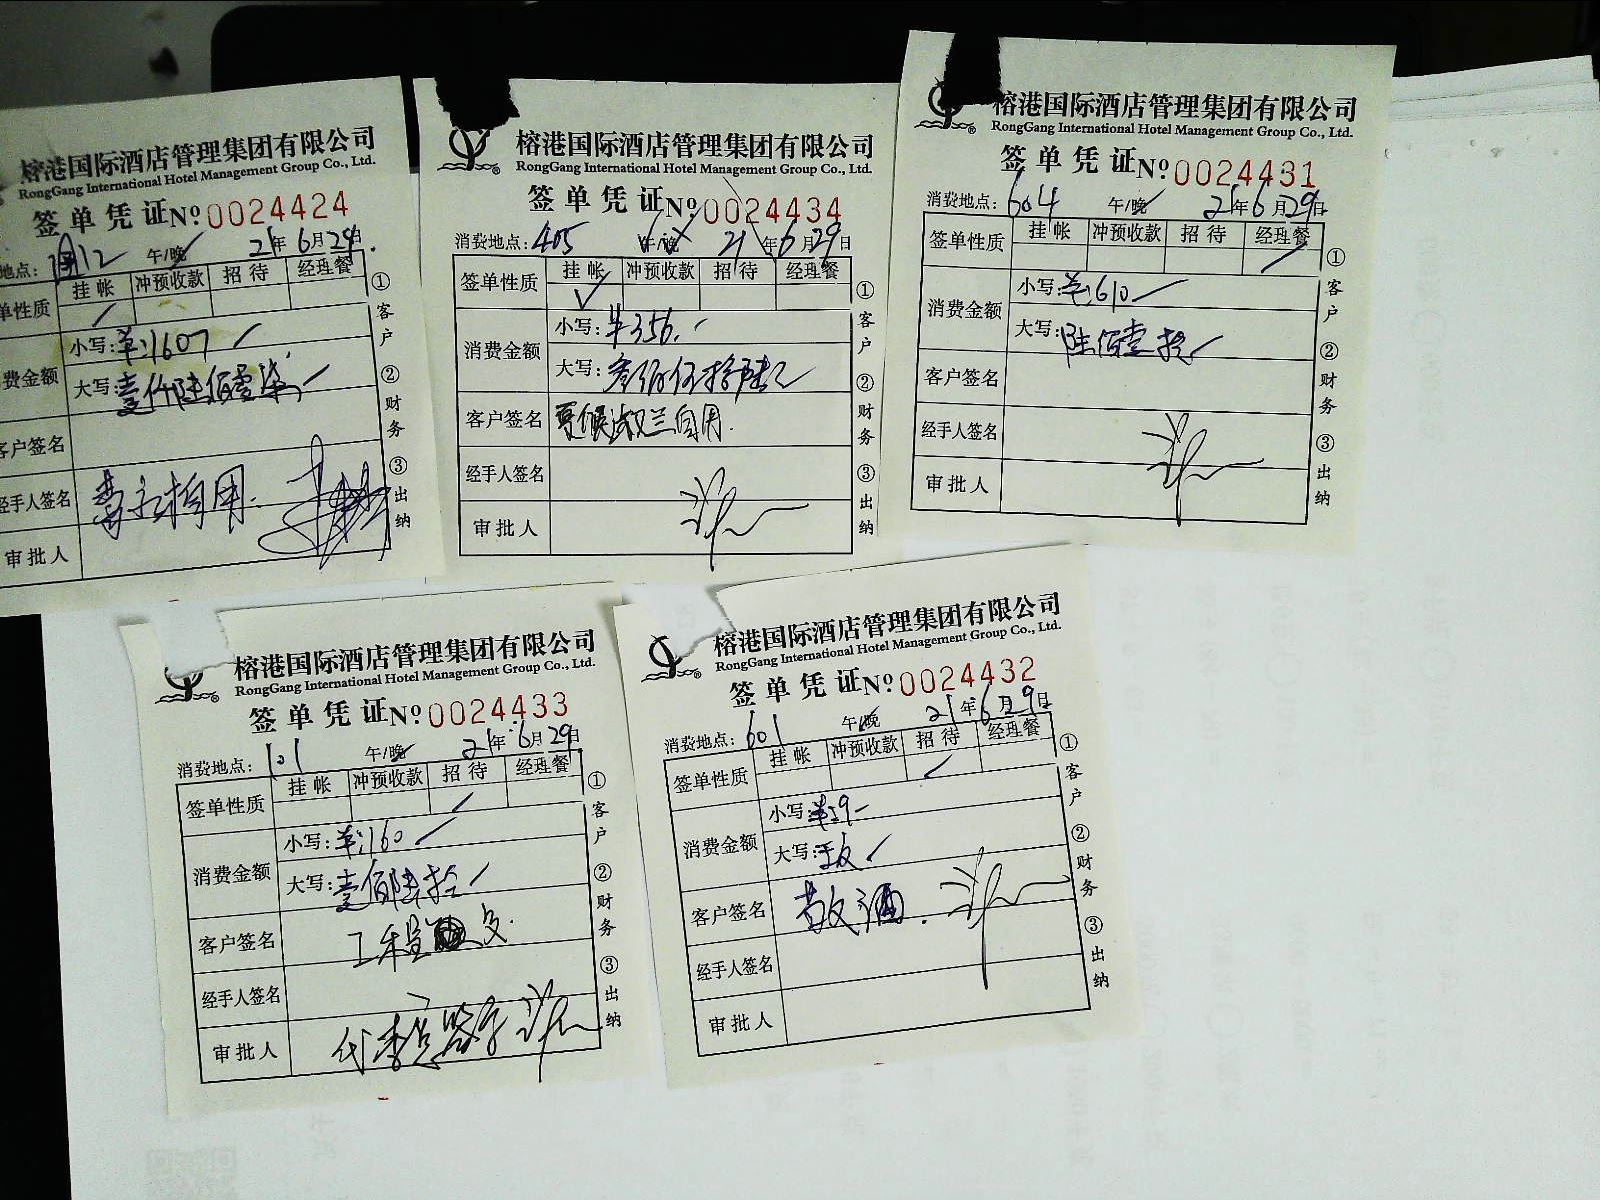 榕港国际酒店管理集团有限公司
RongGang International Hotel Management Group Co., Ltd.
签单凭证 Nº 0024424
地点: 12 午/晚 21年6月29日
单性质 挂帐 冲预收款 招待 经理餐
费金额 小写: 1607
大写: 壹仟陆佰零柒
客户签名
经手人签名
审批人
①客户 ②财务 ③出纳
榕港国际酒店管理集团有限公司
RongGang International Hotel Management Group Co., Ltd.
签单凭证 Nº 0024434
消费地点: 405 午/晚 21年6月29日
签单性质 挂帐 冲预收款 招待 经理餐
消费金额 小写: 356.
大写: 叁佰伍拾陆元
客户签名 夏候淑兰自用.
经手人签名
审批人
①客户 ②财务 ③出纳
榕港国际酒店管理集团有限公司
RongGang International Hotel Management Group Co., Ltd.
签单凭证 Nº 0024431
消费地点: 604 午/晚 21年6月29日
签单性质 挂帐 冲预收款 招待 经理餐
消费金额 小写: 610
大写: 陆佰壹拾
客户签名
经手人签名
审批人
①客户 ②财务 ③出纳
榕港国际酒店管理集团有限公司
RongGang International Hotel Management Group Co., Ltd.
签单凭证 Nº 0024433
消费地点: 101 午/晚 21年6月29日
签单性质 挂帐 冲预收款 招待 经理餐
消费金额 小写: 160
大写: 壹佰陆拾
客户签名 工程
经手人签名
审批人 代李总签字
①客户 ②财务 ③出纳
榕港国际酒店管理集团有限公司
RongGang International Hotel Management Group Co., Ltd.
签单凭证 Nº 0024432
消费地点: 601 午/晚 21年6月29日
签单性质 挂帐 冲预收款 招待 经理餐
消费金额 小写: 39
大写:
客户签名 敬酒.
经手人签名
审批人
①客户 ②财务 ③出纳